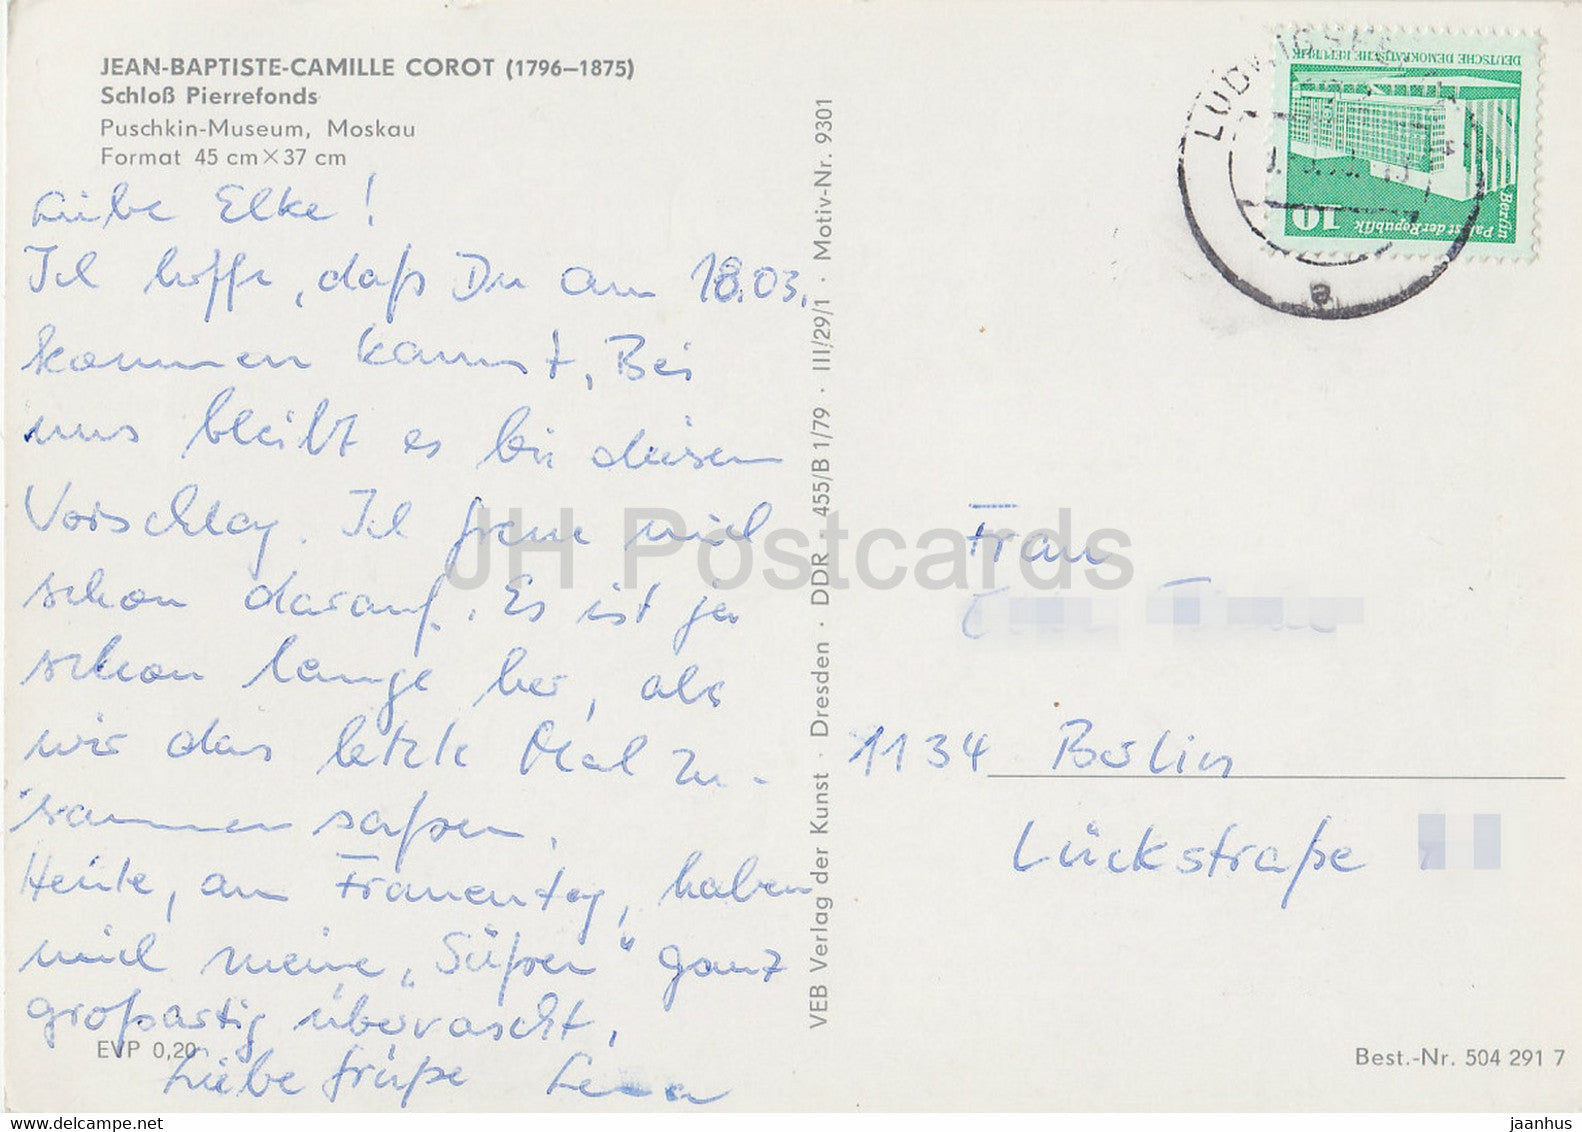 JEAN-BAPTISTE-CAMILLE COROT (1796–1875)
Schloß Pierrefonds
Puschkin-Museum, Moskau
Format 45 cm × 37 cm
Liebe Elke!
Ich hoffe, daß Du am 18.03.
kommen kannst. Bei
uns bleibt es bei diesem
Vorschlag. Ich freue mich
schon darauf. Es ist ja
schon lange her, als
wir das letzte Mal zu-
sammen saßen.
Heute, am Frauentag, haben
mich meine „Süßen“ ganz
großartig überrascht.
Liebe Grüße
EVP 0,20
VEB Verlag der Kunst · Dresden · DDR · 455/B 1/79 · III/29/1 · Motiv-Nr. 9301
DEUTSCHE DEMOKRATISCHE REPUBLIK
Berlin
Palast der Republik
10
Frau
1134 Berlin
Lückstraße
Best.-Nr. 504 291 7
JH Postcards
www.jhpostcards.com
jaanhus